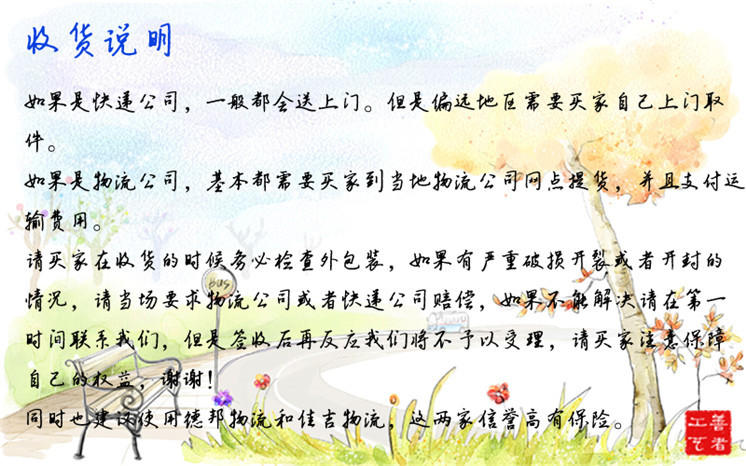 收货说明
如果是快递公司，一般都会送上门。但是偏远地区需要买家自己上门取
件。
如果是物流公司，基本都需要买家到当地物流公司网点提货，并且支付运
输费用。
请买家在收货的时候务必检查外包装，如果有严重破损开裂或者开封的
情况，请当场要求物流公司或者快递公司赔偿，如果不能解决请在第一
时间联系我们，但是签收后再反应我们将不予以受理，请买家注意保障
自己的权益，谢谢！
同时也建议使用德邦物流和佳吉物流，这两家信誉高有保险。
BUS
善者
工艺